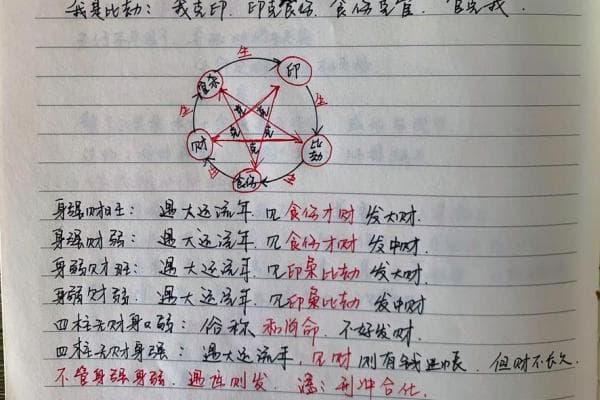 我是比劫：我克印，印克食伤，食伤克官，官克我．
生
官杀
印
生
生
克
克
财
克
克
克
比劫
生
食伤
生
身强财旺：遇大运流年，见食伤才财 发大财．
身强财弱：遇大运流年，见食伤才财 发中财．
身弱财旺：遇大运流年，见印枭比劫 发大财．
身弱财弱．遇大运流年，见印枭比劫 发中财
四柱无财身弱：俗称和尚命．不好发财．
四柱无财身强：遇大运流年，见财则有钱进帐，但财不长久．
不管身强身弱．遇连则发．：刑冲合化．